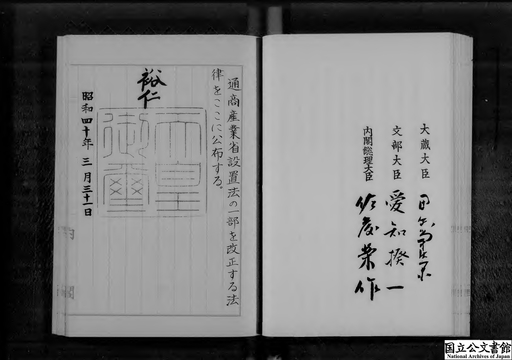 大蔵大臣
文部大臣 愛知揆一
内閣総理大臣 佐藤榮作
通商産業省設置法の一部を改正する法
律をここに公布する。
裕仁
天皇
御璽
昭和四十年三月三十一日
国立公文書館
National Archives of Japan